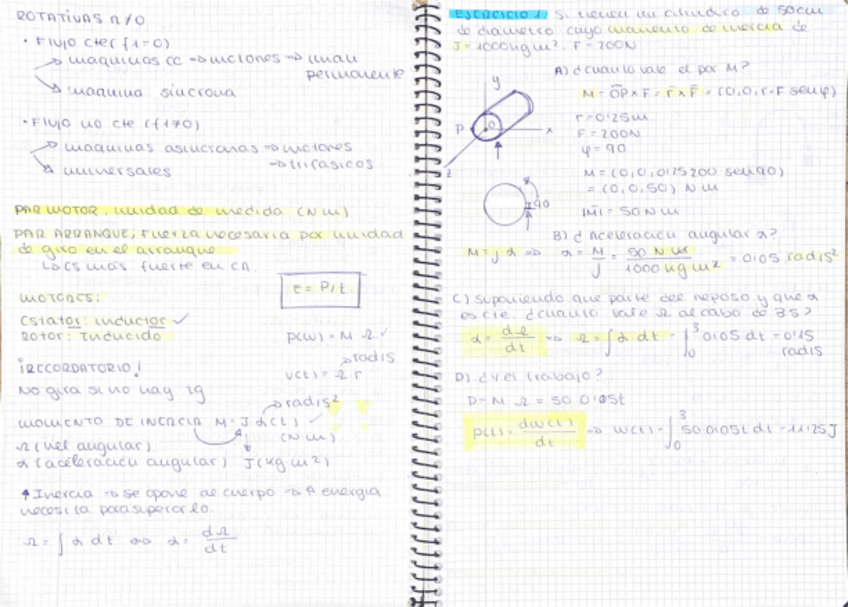 ROTATIVAS n/0
· Flujo cte (f=0)
→ maquinas cc → motores → iman permanente
→ maquina sincrona
· Flujo no cte (f≠0)
→ maquinas asincronas → motores
→ trifasicos
→ universales
PAR MOTOR: unidad de medida (N m)
PAR ARRANQUE; Fuerza necesaria por unidad
de giro en el arranque
↳ es mas fuerte en CA.
τ = P/t.
MOTORES:
Estator: inductor ✓
Rotor: Inducido
P(W) = M · Ω ✓
¡RECORDATORIO!
v(t) = Ω · r → rad/s
No gira si no hay ≠g
→ rad/s²
MOMENTO DE INERCIA M = J · α(t) ✓
(N m)
Ω (vel angular)
α (aceleración angular) J (kg m²)
↑ Inercia → se opone al cuerpo → ↑ energia
necesita para superarlo.
Ω = ∫ α dt ⇔ α = dΩ/dt
EJERCICIO 1: Si tienen un cilindro de 50cm
de diametro cuyo momento de inercia de
J = 1000 kg m². F = 200N
A) ¿cuanto vale el par M?
M = OP × F = r × F = (0,0, r · F sen φ)
y
P
O
x
z
r = 0'25m.
F = 200N
φ = 90
M = (0,0, 0'25 200 sen 90)
= (0,0,50) N m
|M| = 50 N m
90
B) ¿Aceleración angular α?
M = J · α ⇒ α = M/J = 50 N m / 1000 kg m² = 0'05 rad/s²
C) suponiendo que parte del reposo y que α
es cte. ¿cuanto vale Ω al cabo de 3s?
α = dΩ/dt ⇒ Ω = ∫ α dt = ∫₀³ 0'05 dt = 0'15
rad/s
D) ¿y el trabajo?
P = M · Ω = 50 · 0'05t
P(t) = dW(t)/dt ⇒ W(t) = ∫₀³ 50 · 0'05t dt = 11'25 J